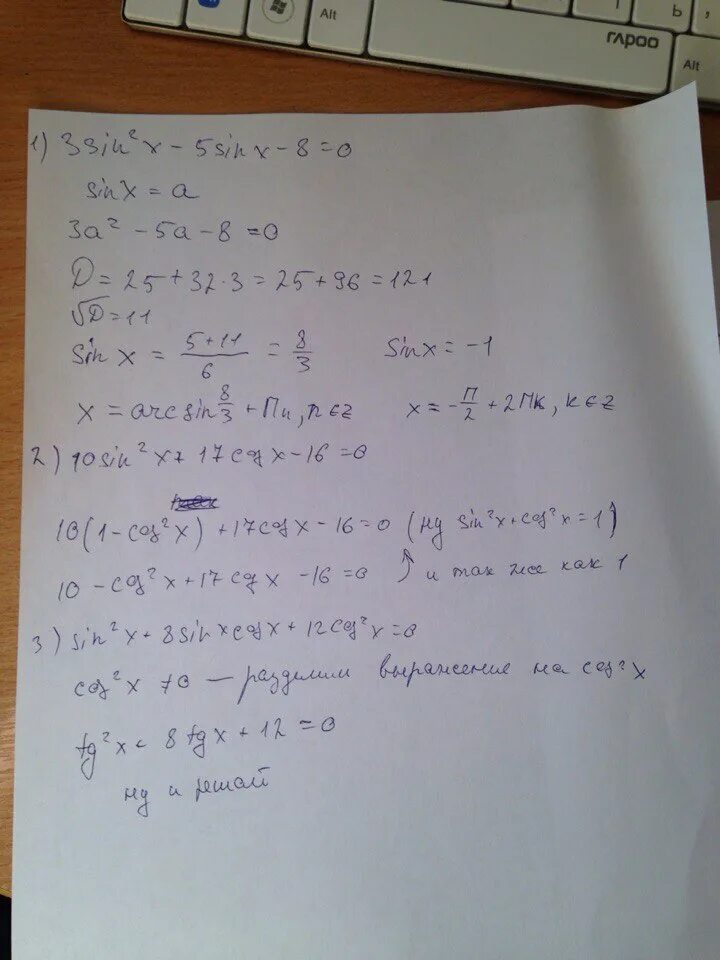 Alt
rapoo
Alt
Ь
1) 3sin²x - 5sinx - 8 = 0
sinx = a
3a² - 5a - 8 = 0
D = 25 + 32·3 = 25 + 96 = 121
√D = 11
sin x = (5+11)/6 = 8/3    sinx = -1
x = arcsin 8/3 + Пn, n∈z    x = -П/2 + 2Пk, k∈z
2) 10sin²x + 17cosx - 16 = 0
10(1-cos²x) + 17cosx - 16 = 0 (ну sin²x + cos²x = 1)
10 - cos²x + 17cosx - 16 = 0 ↑ и так же как 1
3) sin²x + 8sinxcosx + 12cos²x = 0
cos²x ≠ 0 — разделим выражение на cos²x
tg²x + 8tgx + 12 = 0
ну и решай